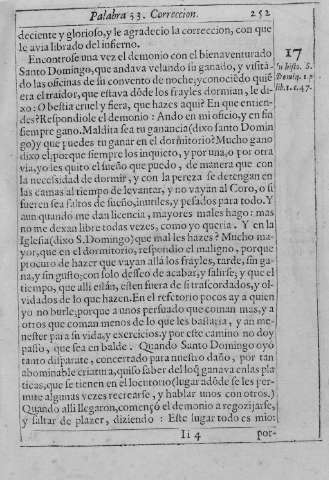 Palabra 53. Correccion. 252
deciente y glorioso, y le agradecio la correccion, con que
le avia librado del infierno.
Encontrose una vez el demonio con el bienaventurado
Santo Domingo, que andava velando su ganado, y visitá-
do las oficinas de su convento de noche; y conociédo quié
era el traidor, que estava dóde los frayles dormian, le di-
xo: O bestia cruel y fiera, que hazes aqui? En que entien-
des? Respondiole el demonio: Ando en mi oficio, y en fin
siempre gano. Maldita sea tu ganancia (dixo santo Domin
go) y que puedes tu ganar en el dormitorio? Mucho gano
dixo el, porque siempre los inquieto, y por una, o por otra
via, yo les quito el sueño que puedo, de manera que con
la necessidad de dormir, y con la pereza se detengan en
las camas al tiempo de levantar, y no vayan al Coro, o si
fueren sea faltos de sueño, inutiles, y pesados para todo. Y
aun quando me dan licencia, mayores males hago: mas
no me dexan libre todas vezes, como yo queria. Y en la
Iglesia (dixo S. Domingo) que mal les hazes? Mucho ma-
yor, que en el dormitorio, respondio el maligno, porque
procuro de hazer que vayan allá los frayles, tarde, sin ga-
na, y sin gusto; con solo desseo de acabar, y salirse; y que el
tiempo, que alli están, estén fuera de si trascordados, y ol-
vidados de lo que hazen. En el refetorio pocos ay a quien
yo no burle; porque a unos persuado que coman mas, y a
otros que coman menos de lo que les bastaria, y an me-
nester para su vida, y exercicios, y por este camino no doy
passo, que sea en balde. Quando Santo Domingo oyó
tanto disparate, concertado para nuestro daño, por tan
abominable criatura, quiso saber del loq̃ ganava en las pla
ticas, que se tienen en el locutorio (lugar adóde se les per-
mite algunas vezes recrearse, y hablar unos con otros.)
Quando alli llegaron, començó el demonio a regozijarse,
y saltar de plazer, diziendo: Este lugar todo es mio:
Ii 4 por-
17
S.
lib. 1. c. 47.